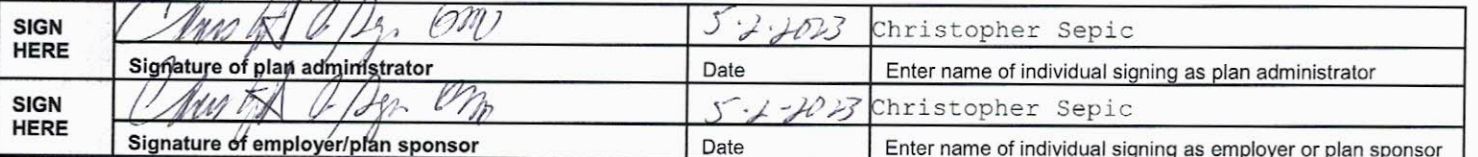 SIGN HERE
5-2-2023 Christopher Sepic
Signature of plan administrator Date Enter name of individual signing as plan administrator
SIGN HERE
5-2-2023 Christopher Sepic
Signature of employer/plan sponsor Date Enter name of individual signing as employer or plan sponsor